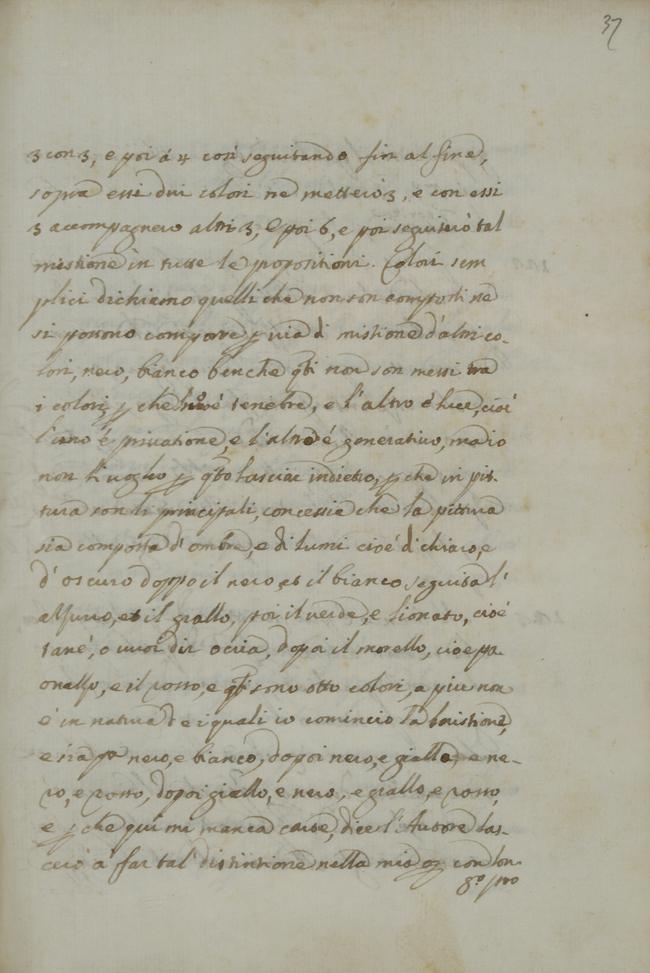 37
3 con 3, e poi á 4 così seguitando fin al fine,
sopra essi dui colori ne metterò 3, e con essi
3 accompagnero altri 3, e poi 6, e poi seguirò tal
mistione in tutte le propositioni. Colori sem
plici dichiamo quelli che non son composti ne
si possono comporre p via di mistione d'altri co-
lori, nero, bianco benche qti non son messi tra
i colori, p che é tenebre, e l'altro é luce, cioé
l'uno é privatione, e l'altro é generativo, ma io
non li voglio p qto lasciar indietro, p che in pit-
tura son li principali, concessie che la pittura
sia composta d'ombre, e di lumi cioé di chiaro, e
d'oscuro doppo il nero, et il bianco seguita l'
assurro, et il giallo, poi il verde, e lionato, cioé
tané, o vuoi dir ocria, dopoi il morello, cioe pa-
onasso, e il rosso, e qti sono otto colori, a piu non
é in natura de i quali io comincio la mistione,
e sia pa nero, e bianco, dopoi nero, e giallo, e ne-
ro, e rosso, dopoi giallo, e nero, e giallo, e rosso,
e p che qui mi manca carte, dice l'Autore las-
cerò á far tal distintione nella mia con lon-
go pro